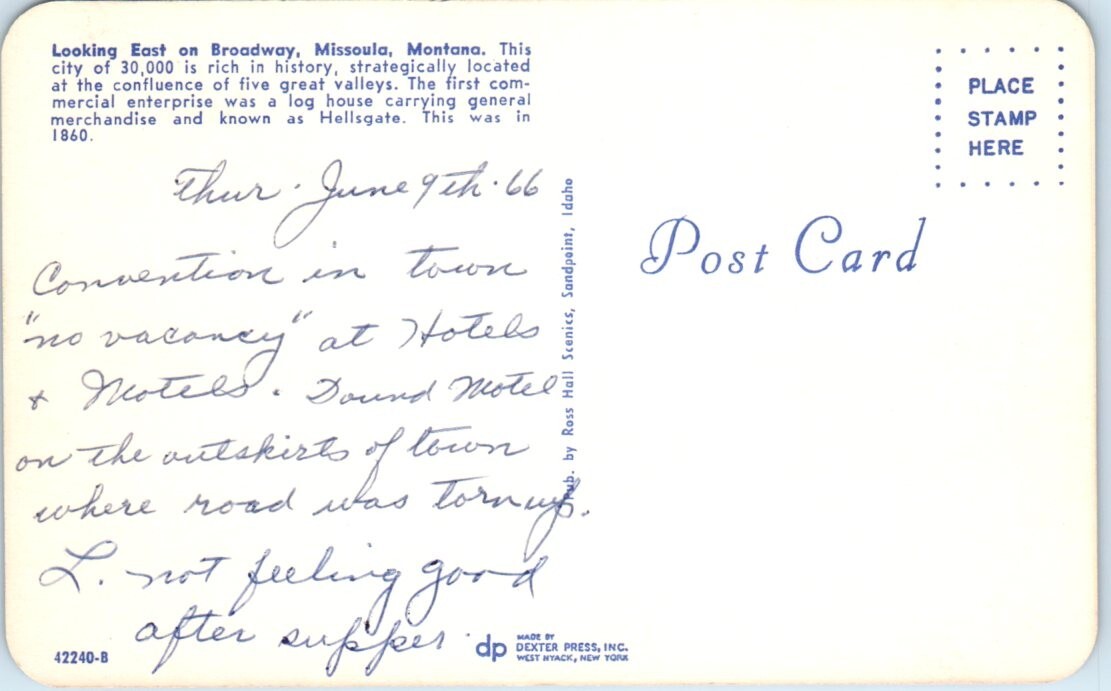 Looking East on Broadway, Missoula, Montana. This
city of 30,000 is rich in history, strategically located
at the confluence of five great valleys. The first com-
mercial enterprise was a log house carrying general
merchandise and known as Hellsgate. This was in
1860.
PLACE
STAMP
HERE
Thur. June 9th. 66
Convention in town
"no vacancy" at Hotels
& Motels. Found Motel
on the outskirts of town
where road was torn up.
L. not feeling good
after supper.
Pub. by Ross Hall Scenics, Sandpoint, Idaho
Post Card
42240-B
dp
MADE BY
DEXTER PRESS, INC.
WEST NYACK, NEW YORK